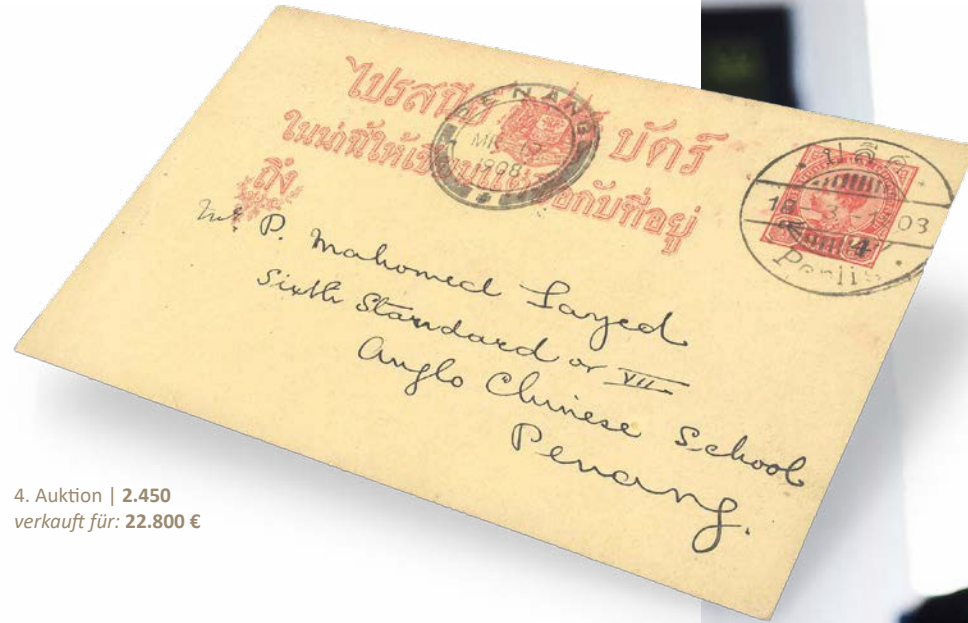 ไปรสนีย์ บัตร์
ในน่านี้ให้เขียน กับที่อยู่
ถึง
PENANG
MR
1908
ปลิศ
4
Mr P. Mahomed Sayed
Sixth Standard or VII
Anglo Chinese School
Penang.
4. Auktion | 2.450
verkauft für: 22.800 €